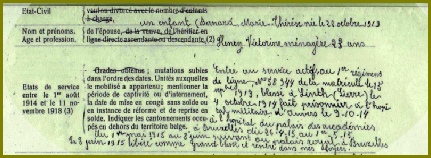 Etat-Civil
veuf ou divorcé avec le nombre d'enfants
à charge,
un enfant (Bernand, Marie-Thérèse née le 28 octobre 1913
Nom et prénoms.
Age et profession.
de l'épouse, de la veuve, de l'héritier en
ligne directe ascendante ou descendante, (2)
Victorine ménagère 23 ans
Etats de service
entre le 1er août
1914 et le 11 no-
vembre 1918 (3)
Grades obtenus ; mutations subies
dans l'ordre des dates. Unités auxquelles
le mobilisé a appartenu; mentionner la
période de captivité ou d'internement,
la date de mise en congé sans solde ou
en instance de réforme et de reprise en
solde. Indiquer les cantonnements occu-
pés en dehors du territoire belge.
Entré au service actif au 1er régiment
de ligne
1913, blessé à
4 octobre 1914 fait prisonnier à l'hôpi
tal militaire d'Anvers le 9.10.14
à l'hôpital du palais des académies
à Bruxelles
du 1er mars 1915 au 8 juin suivant au palais royal à Bruxelles
le 8 juin 1915 libéré comme grand blessé et rentré dans mes foyers.